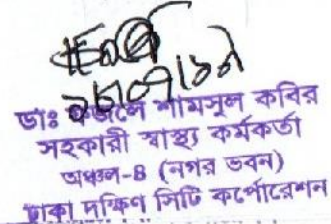 ২৮/০৭/১৯
ডাঃ ফজলে শামসুল কবির
সহকারী স্বাস্থ্য কর্মকর্তা
অঞ্চল-৪ (নগর ভবন)
ঢাকা দক্ষিণ সিটি কর্পোরেশন